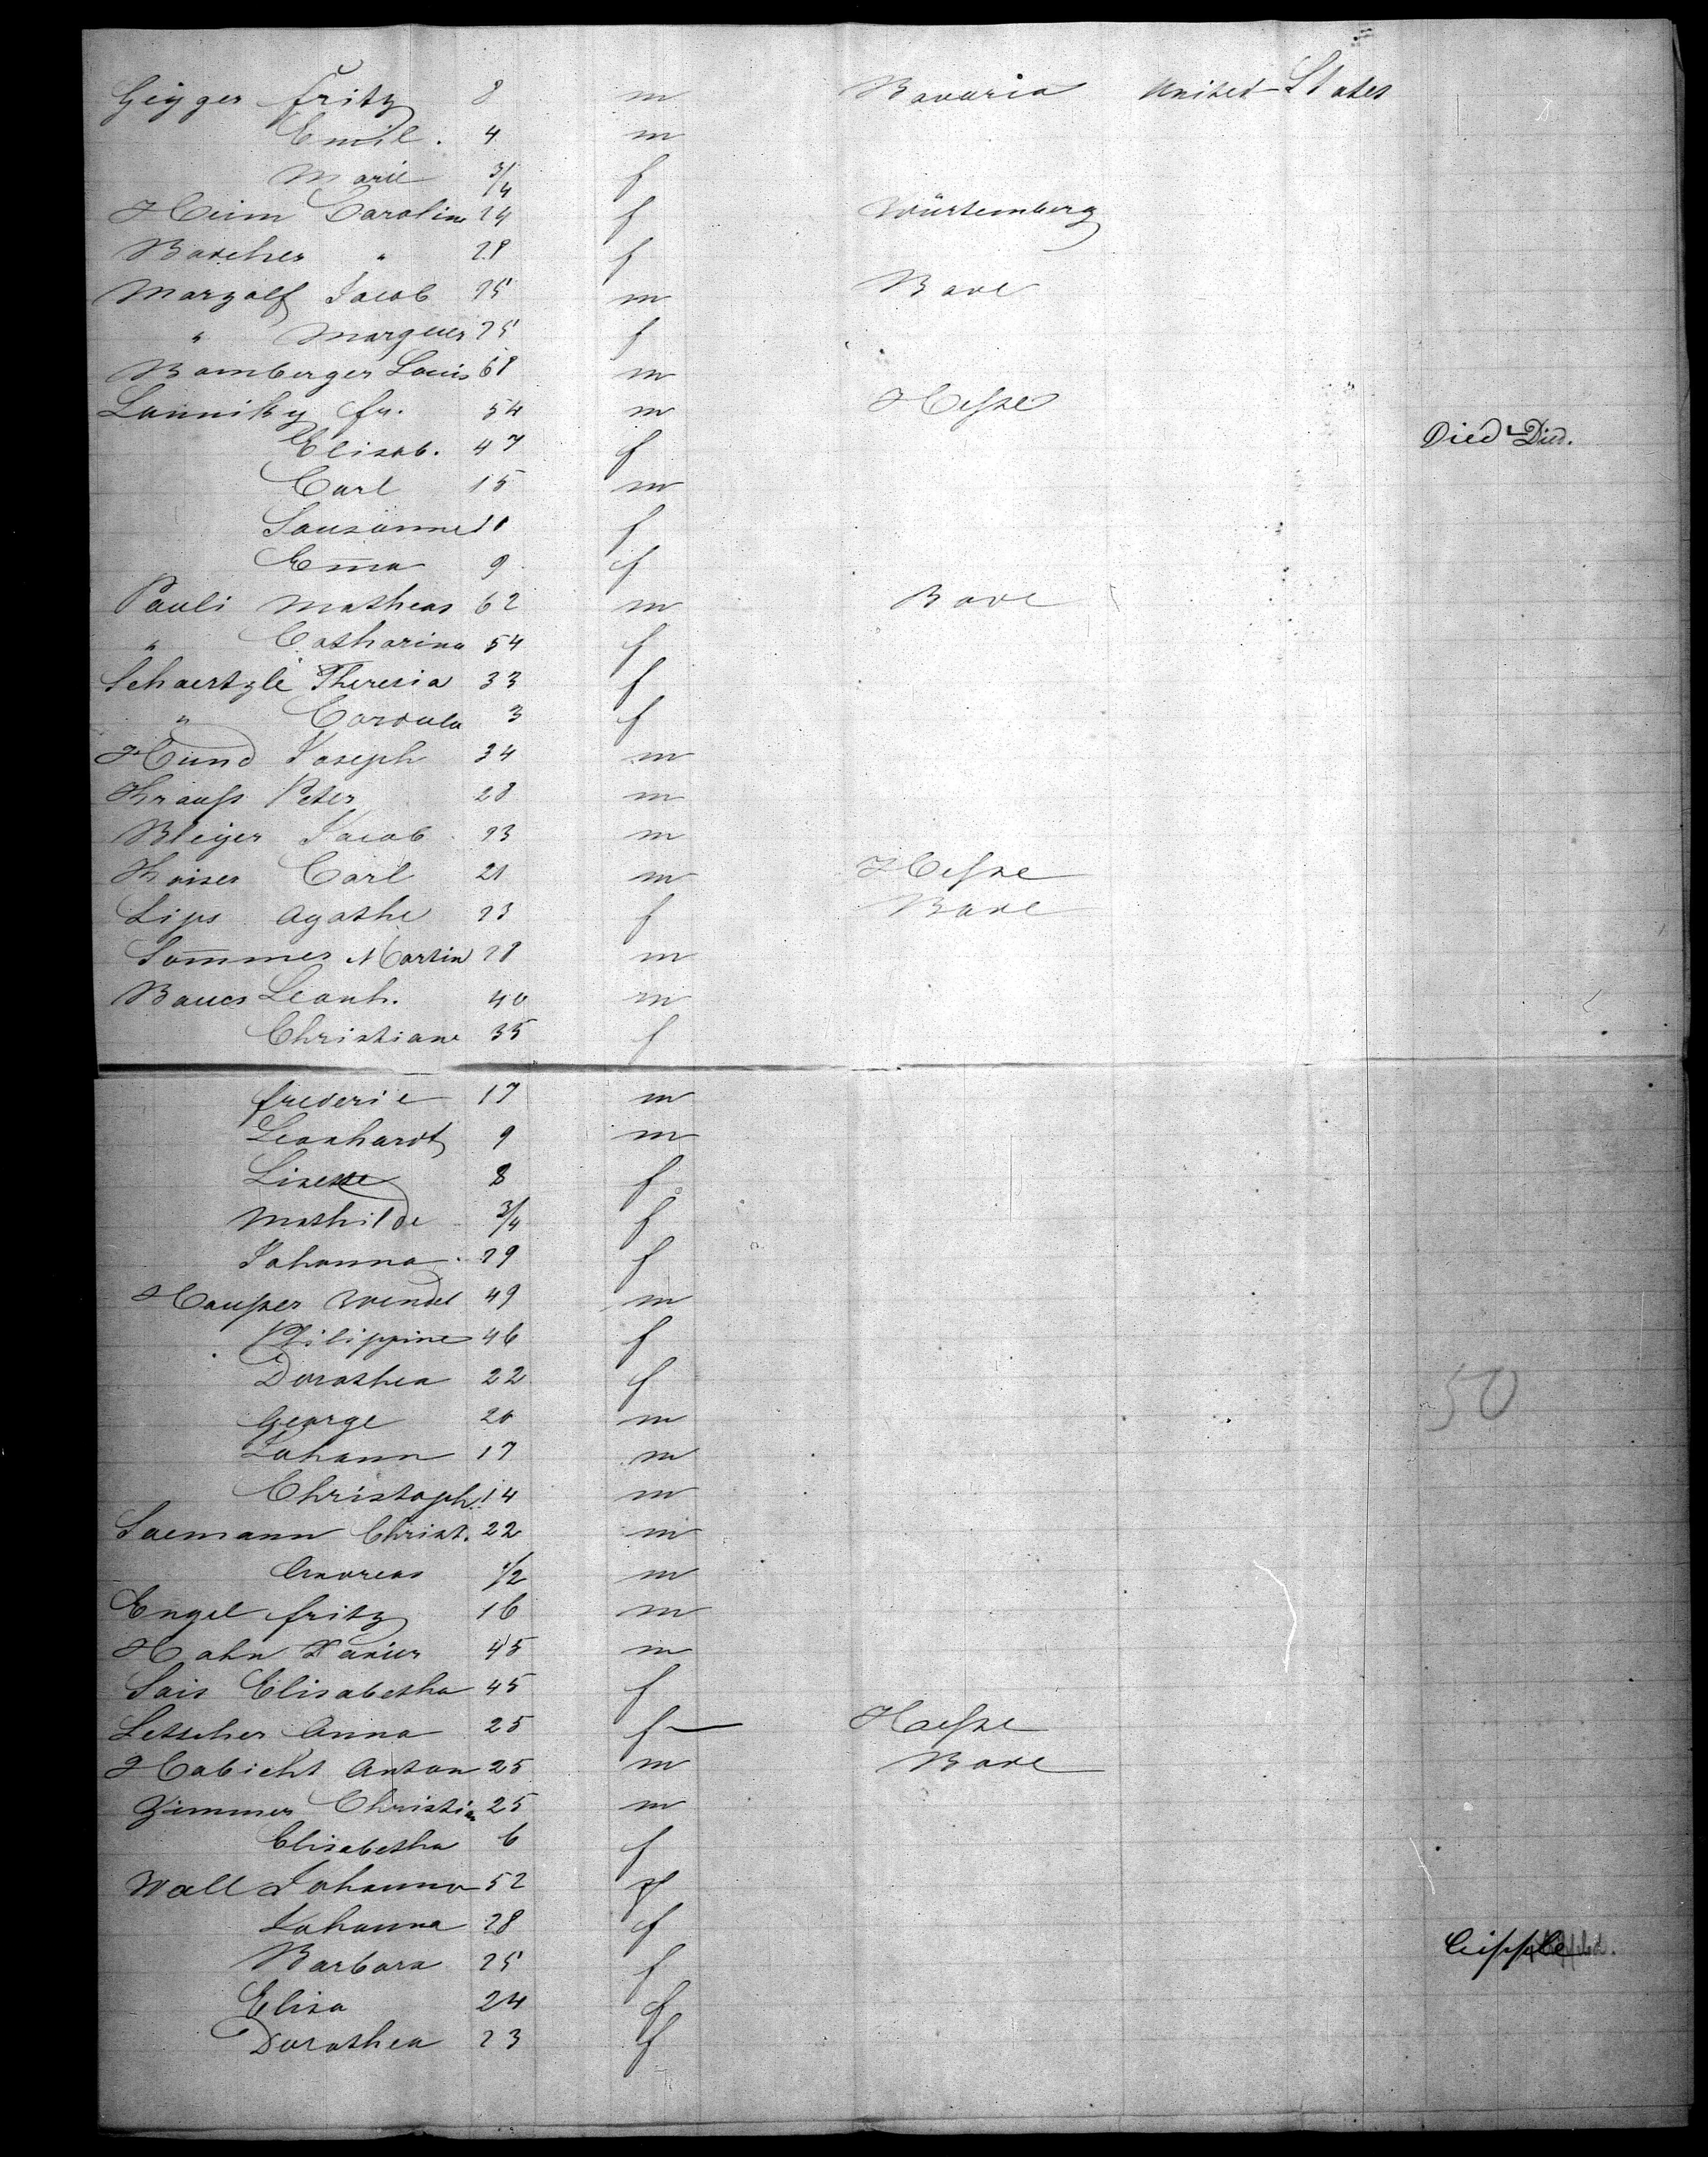 Geyger Fritz 8 m Bavaria United States
Emil. 4 m
Marie 3/4 f
Heim Caroline 24 f Würtemberg
" 28 f
Marzolf Jacob 25 m Bade
" Marguer 25 f
Bamberger Louis 68 m
fr. 54 m Hesse
Elisab. 47 f Died Died.
Carl 15 m
Sausanne 11 f
Em̄a 9 f
Pauli Matheas 62 m Bade
" Catharina 54 f
Schaertzle Theresia 33 f
" Cordula 3 f
Hund Joseph 34 m
Krauss Peter 28 m
Bleyer Jacob 23 m
Kaiser Carl 21 m Hesse
Lips Agathe 23 f Bade
Som̄mer Martin 28 m
Baues Leonh. 40 m
Christiane 35 f
frederic 17 m
Leonhardt 9 m
Lisette 8 f
Mathilde 3/4 f
Johanna 29 f
Hausser Wendel 49 m
Philippine 46 f
Dorothea 22 f
George 20 m 50
Johann 17 m
Christoph. 14 m
Saemann Christ. 22 m
Andreas 1/2 m
Engel fritz 16 m
Hahn Xavier 45 m
Sais Elisabetha 45 f
Letscher Anna 25 f Hesse
Habicht Anton 25 m Bade
Zimmer Christian 25 m
Elisabetha 6 f
Wall Johanna 52 f
Johanna 28 f
Barbara 25 f
Elisa 24 f
Dorothea 23 f